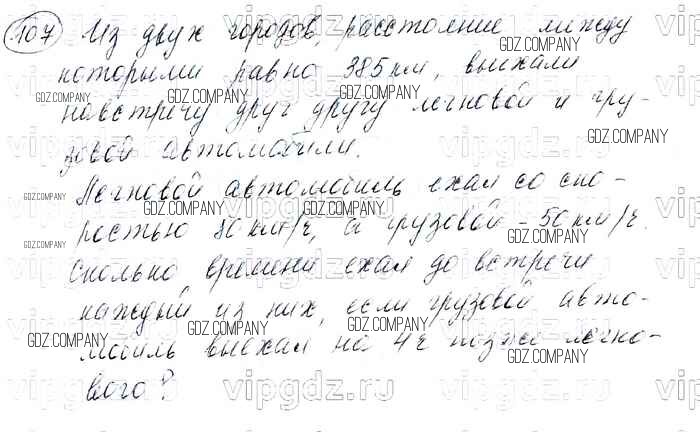 107 Из двух городов, расстояние между
которыми равно 385 км, выехали
навстречу друг другу легковой и гру-
зовой автомобили.
Легковой автомобиль ехал со ско-
ростью 80 км/ч, а грузовой - 50 км/ч.
Сколько времени ехал до встречи
каждый из них, если грузовой авто-
мобиль выехал на 4ч позже легко-
вого?
GDZ.COMPANY
vipgdz.ru